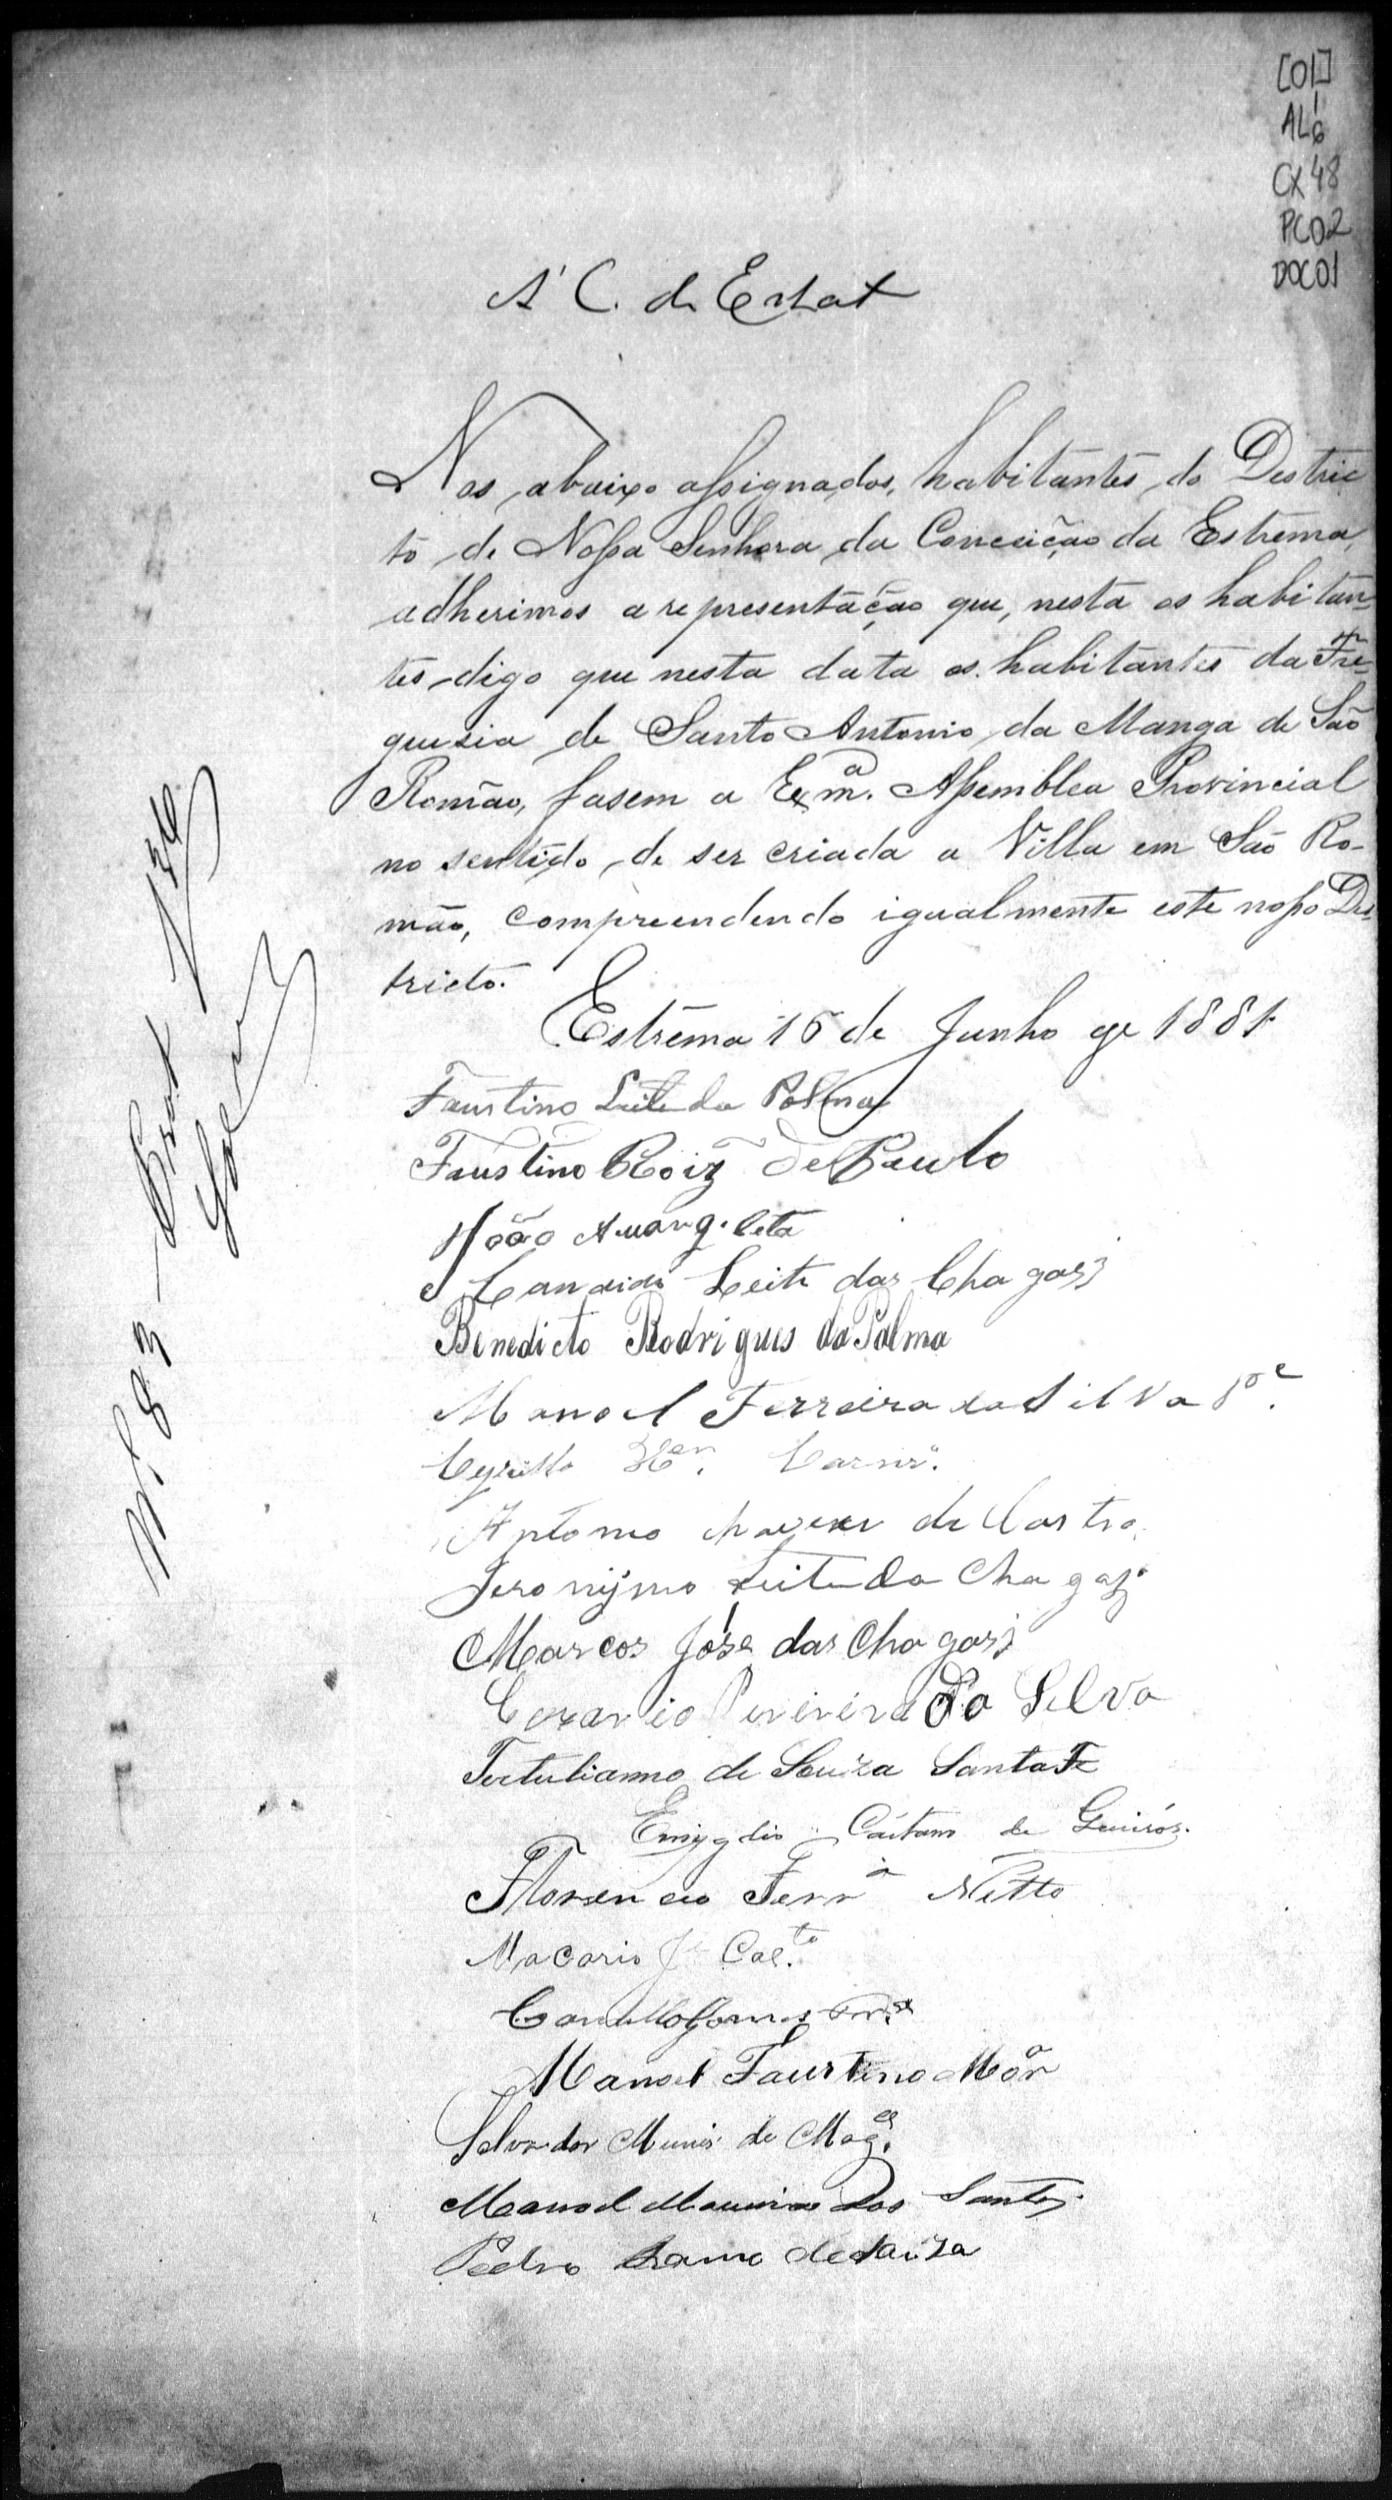 [01]
AL 1 6
CX 48
PC02
DOC01
A' C. de Estat
Nos abaixo assignados, habitantes do Destric
to de Nossa Senhora da Conceição da Estrema,
adherimos a representação que, nesta os habitan=
tes digo que nesta data os habitantes da Fre=
guesia de Santo Antonio da Manga de São
Romão, fasem a Exmª. Assemblea Provincial
no sentido de ser criada a Villa em São Ro-
mão, compreendendo igualmente este nosso Des=
tricto.
Estrema 16 de Junho de 1881
Faustino Leite da Palma
Faustino Roiz de Paulo
João
Candido Leite das Chagas
Benedicto Rodrigues da Palma
Manoel Ferreira da Silva
Cyrillo
Antonio de Castro
Jeronijmo Leite da Chagas
Marcos José das Chagas
Cezario Pereira da Silva
Tertulianno de Souza Santa Fé
Emygdio Caitano de Queirós.
Florencio Ferrª Netto
Macario Je Cae.to
Camillo Gomes Ferª
Manoel Faustino Morª
Salvador Munis de Mag.es
Manoel dos Santos
Pedro de Souza
Nº 83